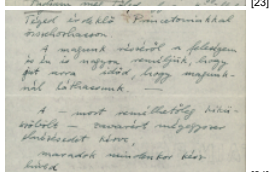 [23]
Téged érdeklő Princetoniakkal
összehozhasson
A magunk részéről a feleségem
és én is nagyon reméljük, hogy
jut arra időd, hogy magunk-
nál láthassunk. —
A — most remélhetőleg kikü-
szöbölt — zavarért mégegyszer
elnézésedet kérve,
maradok mindenkor kész
híved